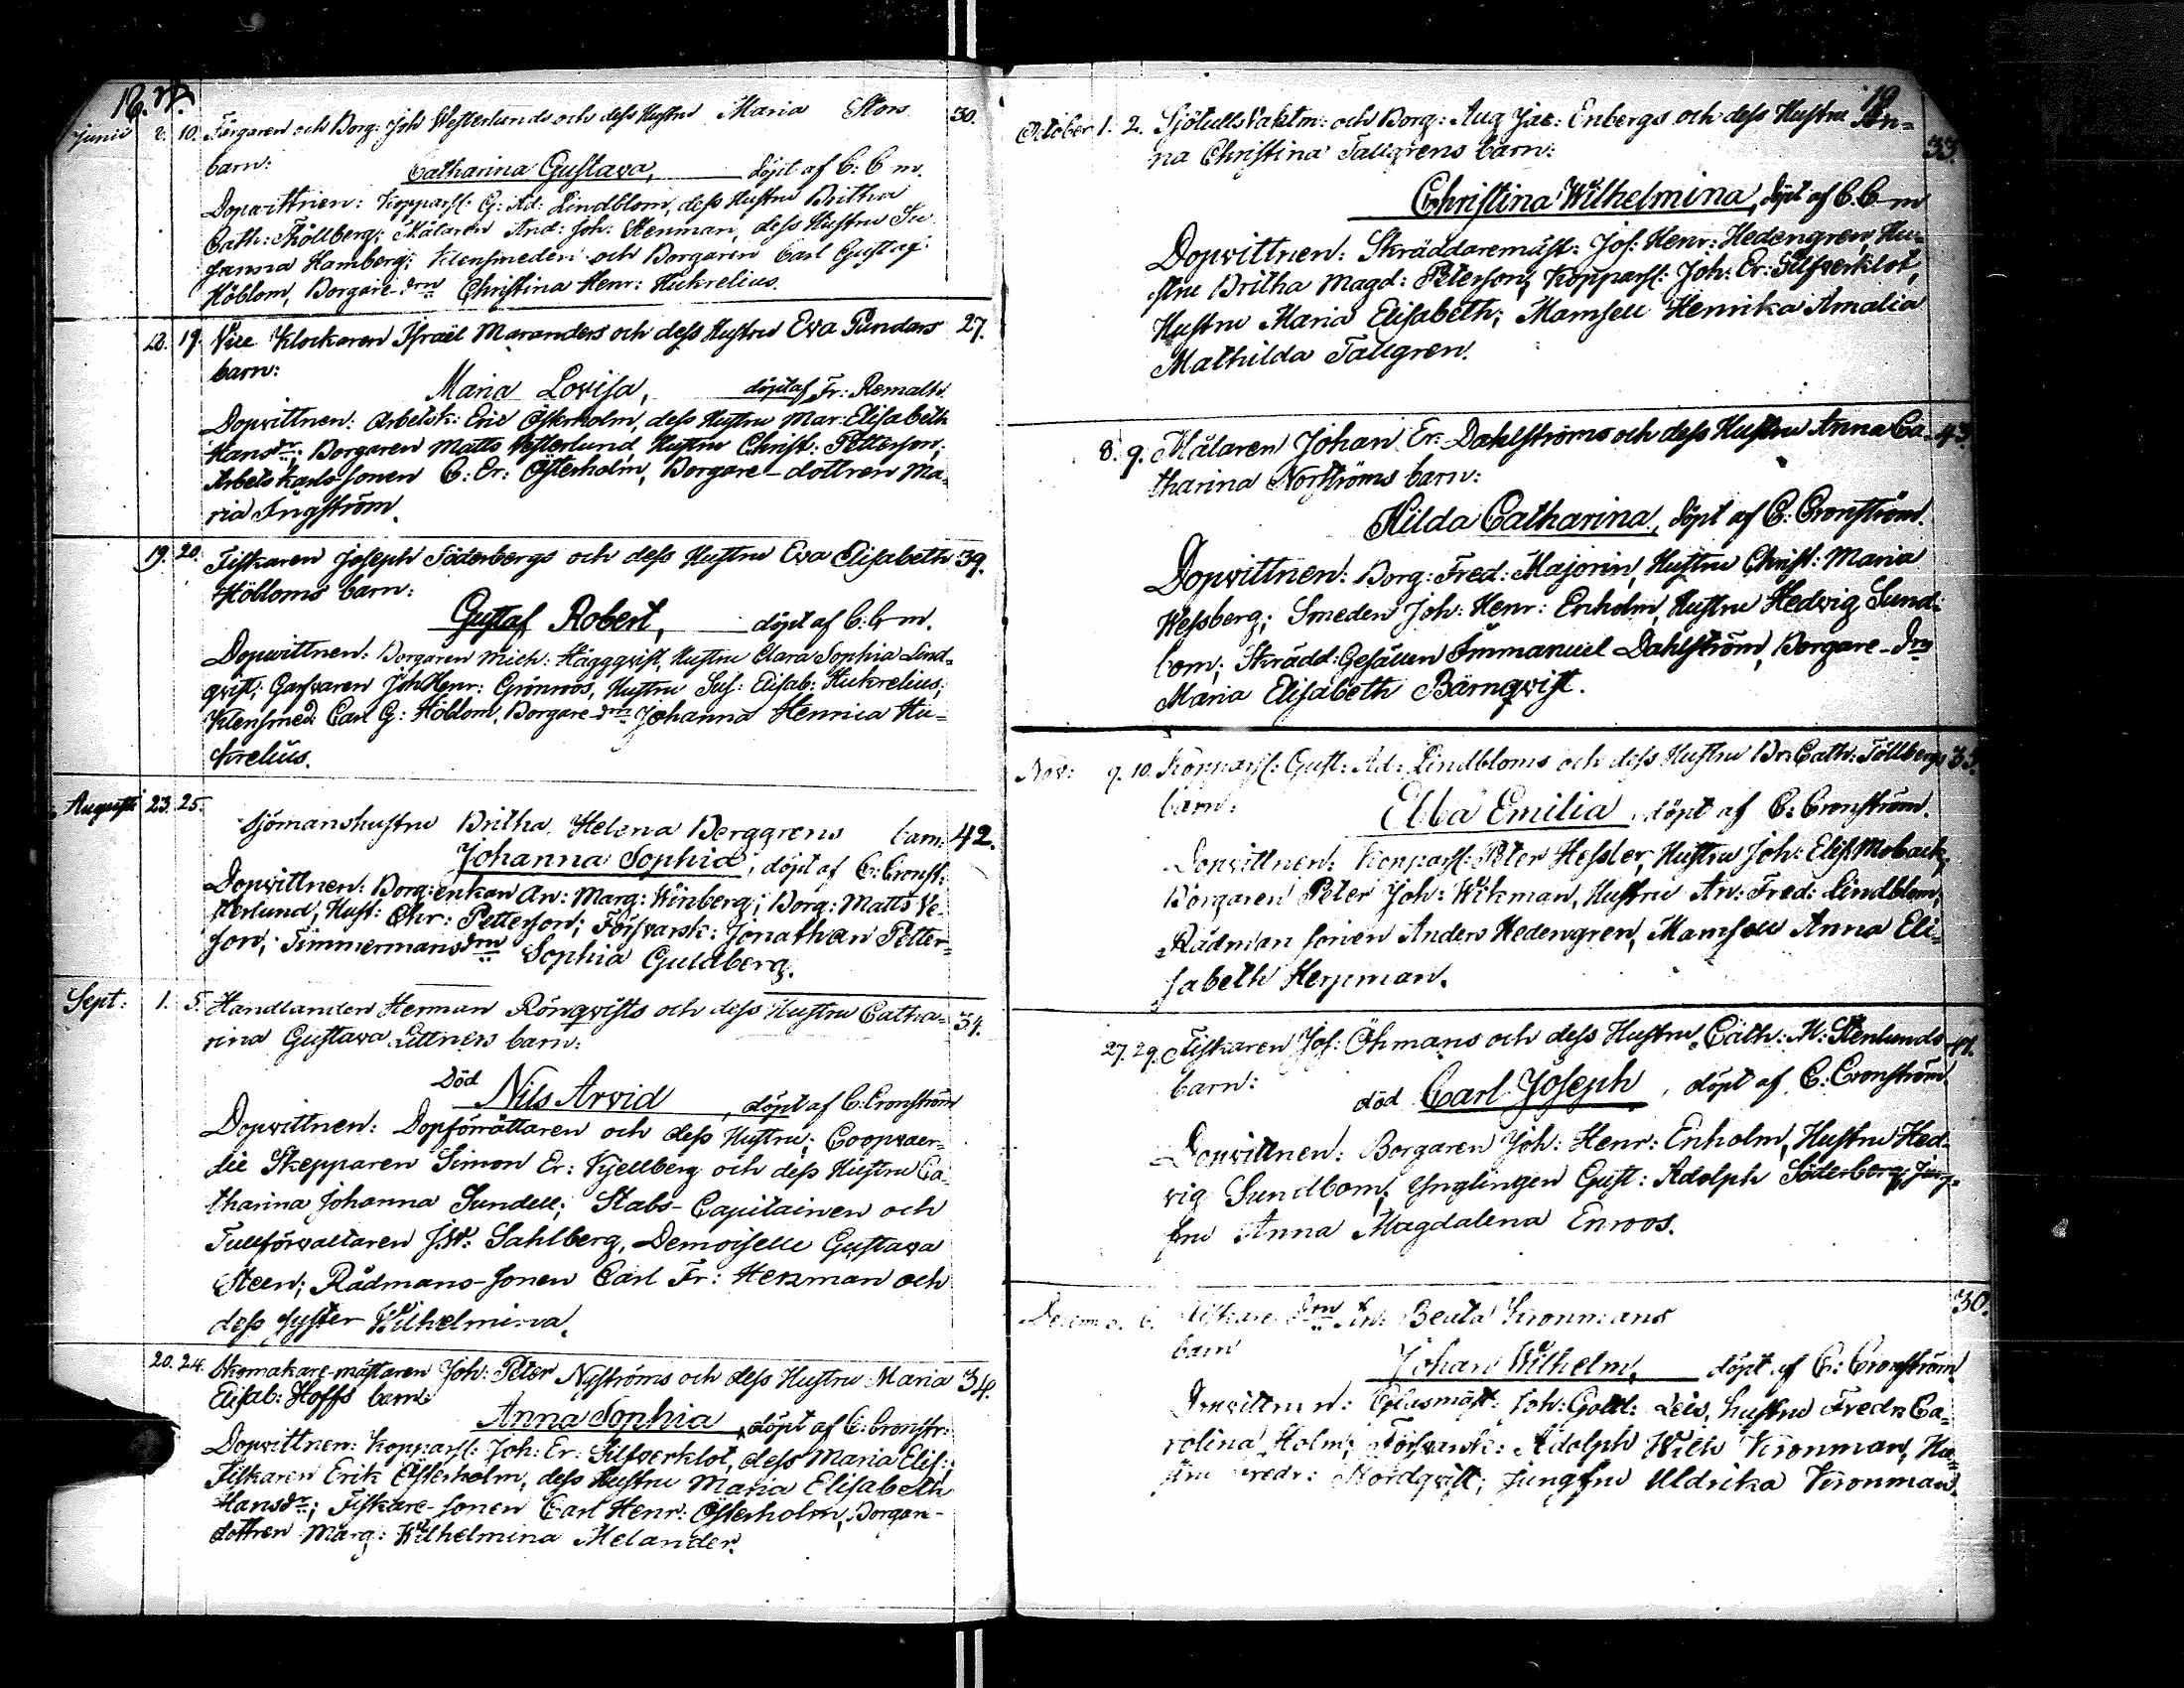 18.
Junii 2. 10. Färgaren och Borg: Joh Westerlunds och dess Hustru Maria Stors 30.
barn:
Catharina Gustava, döpt af C: C m.
Dopvittnen: Kopparsl: G: Ad: Lindblom, dess Hustru Britha
Cath: Töllberg; Målaren And: Joh: Stenman, dess Hustru Su-
sanna Hamberg; Klensmeden och Borgaren Carl Gustaf
Höblom, Borgare-drn Christina Henr: Hukrelius.
12. 19. Vice Klockaren Israël Maranders och dess Hustru Eva Punders 27.
barn:
Maria Lovisa, döpt af Fr: Remahl.
Dopvittnen: Arbetsk: Eric Österholm, dess Hustru Mar: Elisabeth
Hansdr; Borgaren Matts Vesterlund, Hustru Christ: Petterson;
Arbetskarls sonen C: Er: Österholm, Borgare-dottren Ma-
ria Ingström.
19. 20. Fiskaren Joseph Söderbergs och dess Hustru Eva Elisabeth 39.
Höbloms barn:
Gustaf Robert, döpt af C: C m.
Dopvittnen: Borgaren Mich: Häggqvist, Hustru Clara Sophia Lind-
qvist; Garfvaren Joh Henr: Grönroos, Hustru Sus: Elisab: Hukrelius;
Klensmed: Carl G: Höblom, Borgare-drn Johanna Henrica Hu-
krelius.
Augusti 23. 25.
Sjömanshustru Britha Helena Berggrens barn: 42.
Johanna Sophia, döpt af C: Cronst:
Dopvittnen: Borg: enkan An: Marg: Winberg; Borg: Matts Ve-
sterlund, Hust: Chr: Petterson; Försvarsk: Jonathan Petter-
son, Timmermansdrn Sophia Guldberg.
Sept: 1. 5. Handlanden Herman Rönqvists och dess Hustru Catha- 34.
rina Gustava Littners barn:
Död Nils Arvid, döpt af C: Cronström
Dopvittnen: Dopförrättaren och dess Hustru; Coopvaer-
die Skepparen Simon Er: Kjellberg och dess Hustru Ca-
tharina Johanna Sundell; Stabs-Capitainen och
Tullförvaltaren J. W: Sahlberg, Demoiselle Gustava
Steen; Rådmans-sonen Carl Fr: Herkman och
dess syster Wilhelmina.
20. 24. Skomakare-mästaren Joh: Peter Nyströms och dess Hustru Maria 34.
Elisab: Hoffs barn:
Anna Sophia, döpt af C: Cronstr:
Dopvittnen: Kopparsl: Joh: Er: Silfverklot, dess Maria Elis:
Fiskaren Erik Österholm, dess Hustru Maria Elisabeth
Hansdr; Fiskare-sonen Carl Henr: Österholm, Borgar-
dottren Marg: Wilhelmina Melander.
19
October 1. 2. Sjötulls Vaktm: och Borg: Aug Jac: Enbergs och dess Hustru An-
na Christina Tallgrens barn: 33.
Christina Wilhelmina, döpt af C. C m
Dopvittnen: Skräddaremäst: Jos: Henr: Hedengren, Hu-
stru Britha Magd: Peterson; Kopparsl: Joh: Er: Silfverklot,
Hustru Maria Elisabeth; Mamsell Henrika Amalia
Mathilda Tallgren.
8. 9. Målaren Johan Er: Dahlströms och dess Hustru Anna Ca- 43.
tharina Norströms barn:
Hilda Catharina, döpt af C: Cronström.
Dopvittnen: Borg: Fred: Majorin, Hustru Christ: Maria
Wessberg; Smeden Joh: Henr: Enholm, Hustru Hedvig Sund-
bom; Skrädd: Gesällen Immanuel Dahlström, Borgare-drn
Maria Elisabeth Bärnqvist.
Nov: 9. 10. Kopparsl: Gust: Ad: Lindbloms och dess Hustru Br: Cath: Töllbergs
barn:
Ebba Emilia, döpt af C: Cronström.
Dopvittnen: Kopparsl: Peter Hessler, Hustru Joh: Elis: Moback;
Borgaren Peter Joh: Wikman, Hustru An: Fred: Lindblom;
Rådman sonen Anders Hedengren, Mamsell Anna Eli-
sabeth Herkman.
27. 29. Fiskaren Jos: Öhmans och dess Hustru Cath: M: Stenlunds 41.
barn:
död Carl Joseph, döpt af C: Cronström.
Dopvittnen: Borgaren Joh: Henr: Enholm, Hustru Hed-
vig Sundbom; Ynglingen Gust: Adolph Söderberg, Jung-
fru Anna Magdalena Enroos.
Decem 6. Fiskare drn An: Beata Kronmans 30.
barn
Johan Wilhelm, döpt af C: Cronström
Dopvittnen: Glasmäst: Joh: Gottl: Leis, hustru Fredr: Ca-
rolina Holm; Försvarsk: Adolph Wilh Kronman, Hu-
stru Fredr: Nordqvist; Jungfru Uldrika Kronman.